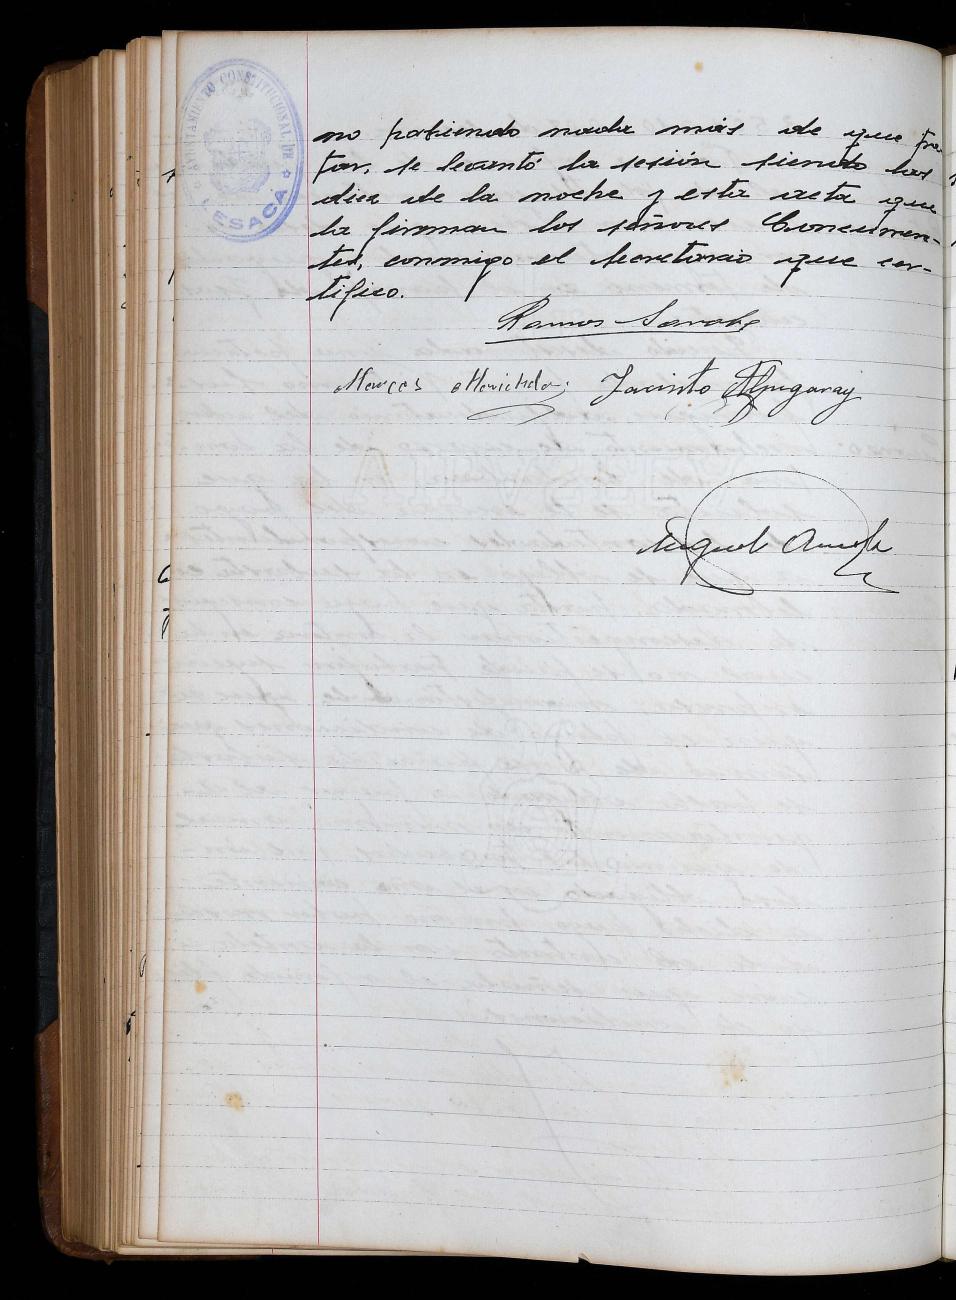 AYUNTAMIENTO CONSTITUCIONAL DE
LESACA
no habiendo nada más de que tra-
tar, se levantó la sesión siendo las
diez de la noche y esta acta que
la firman los señores Concurren-
tes, conmigo el Secretario que cer-
tifico.
Ramos
Jacinto
Miguel